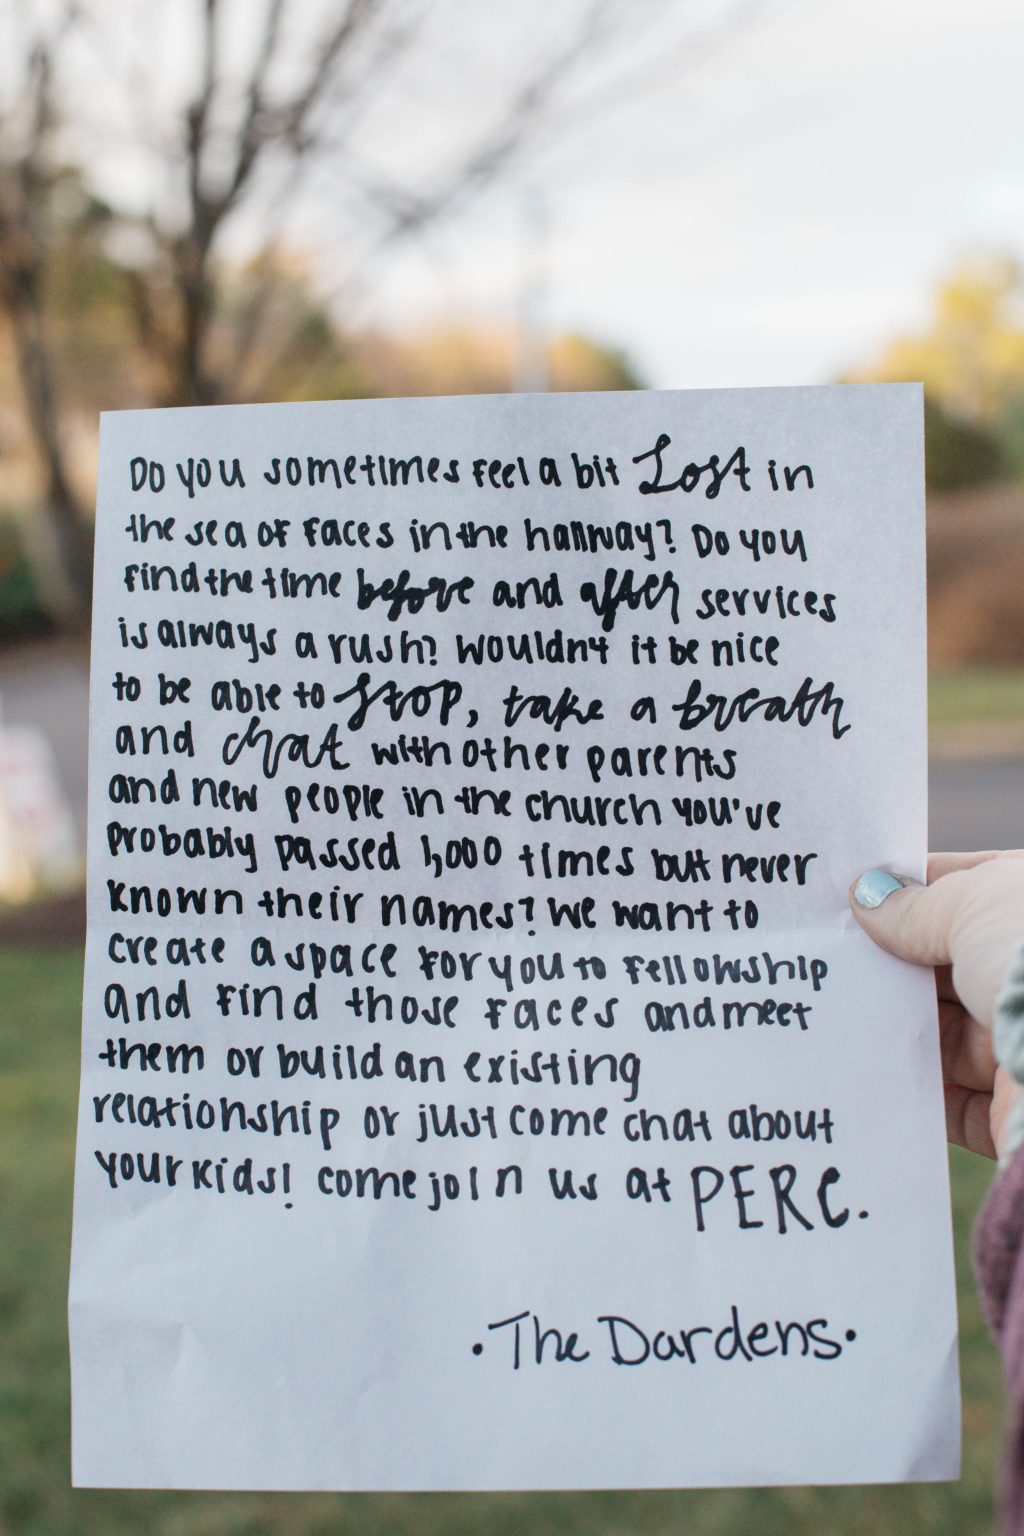 Do you sometimes feel a bit Lost in
the sea of faces in the hallway? Do you
find the time before and after services
is always a rush? Wouldn't it be nice
to be able to stop, take a breath
and chat with other parents
and new people in the church you've
probably passed 1,000 times but never
known their names? We want to
create a space for you to fellowship
and find those faces and meet
them or build an existing
relationship or just come chat about
your kids! Come join us at PERC.
·The Dardens·